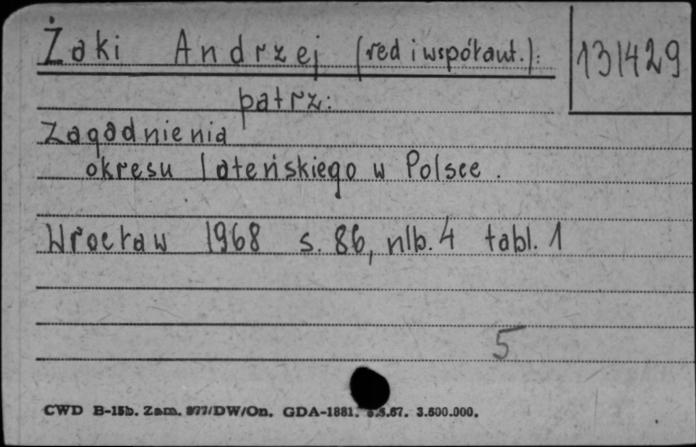 Żaki Andrzej (red i współaut.):
131429
patrz:
Zagadnienia
okresu lateńskiego w Polsce.
Wrocław 1968 s. 86, nlb. 4 tabl. 1
5
CWD B-15b. Zam. 977/DW/On. GDA-1881. 67. 3.600.000.